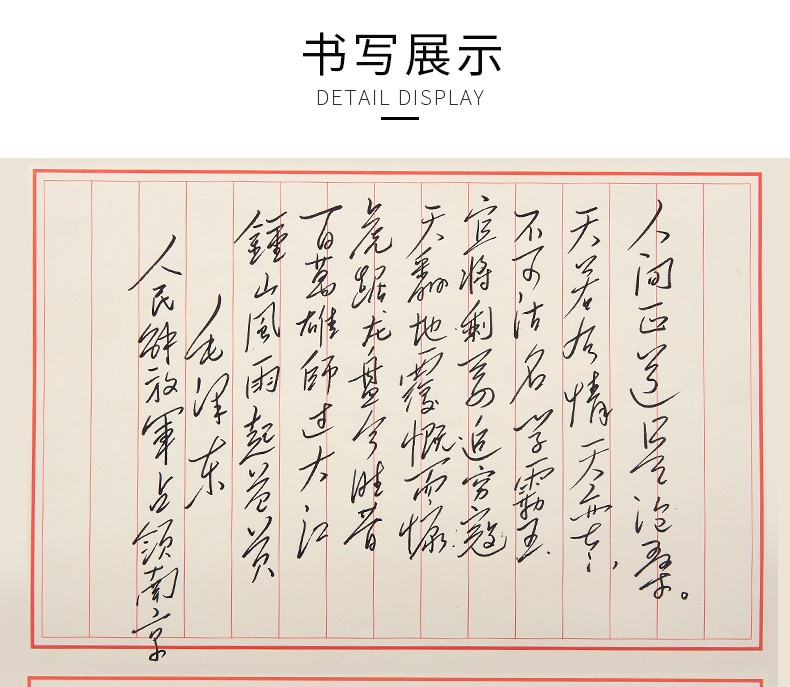 书写展示
DETAIL DISPLAY
人民解放軍占領南京
毛泽东
鍾山風雨起苍黄
百萬雄師过大江
虎踞龙盘今胜昔
天翻地覆慨而慷
宜将剩勇追穷寇
不可沽名学霸王
天若有情天亦老
人间正道是沧桑。